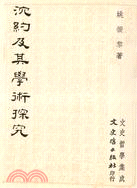 姚振黎著
沈約及其學術探究
文史哲學集成
文史哲出版社印行